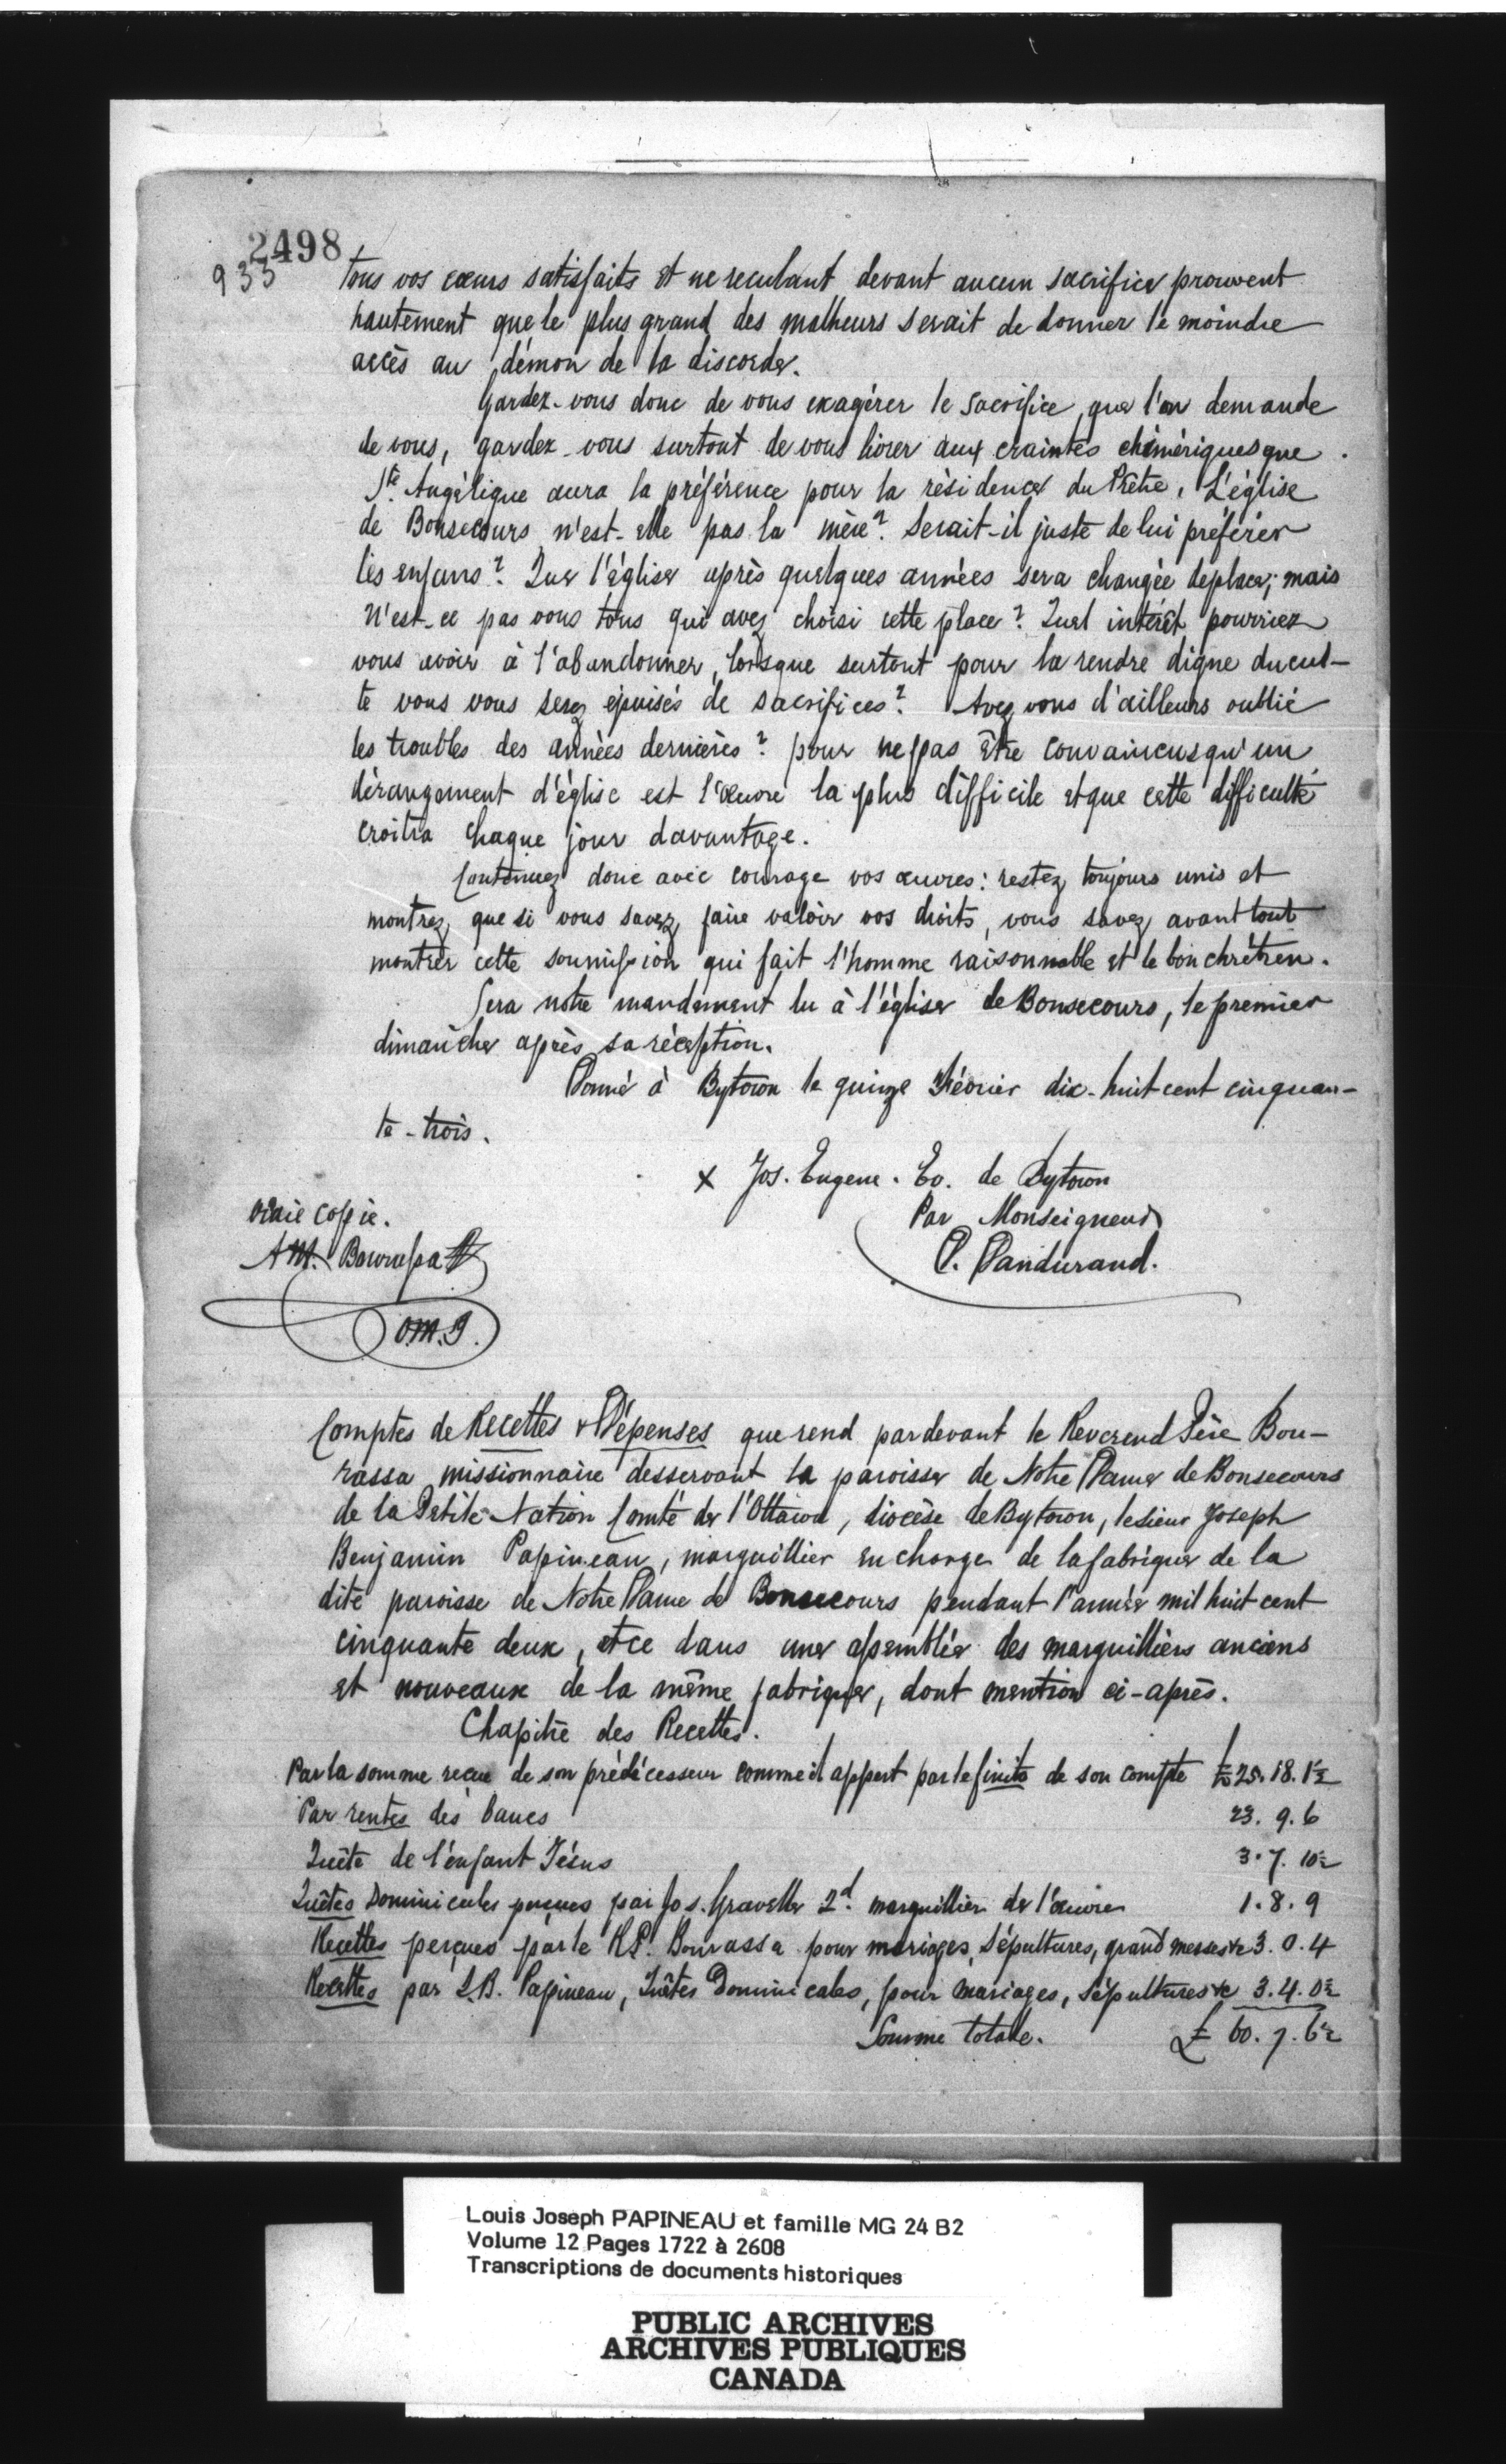 2498
933
tous vos cœurs satisfaits et ne reculant devant aucun sacrifice prouvent
hautement que le plus grand des malheurs serait de donner le moindre
accès au démon de la discorde.
Gardez-vous donc de vous exagérer le sacrifice que l'on demande
de vous, gardez-vous surtout de vous livrer aux craintes chimériques que
Ste. Angélique aura la préférence pour la résidence du Prêtre. L'église
de Bonsecours n'est-elle pas la mère? Serait-il juste de lui préférer
les enfans? Que l'église après quelques années sera changée de place; mais
n'est-ce pas vous tous qui avez choisi cette place? Quel intérêt pourriez
vous avoir à l'abandonner, lorsque surtout pour la rendre digne du cul-
te vous vous serez épuisés de sacrifices? Avez vous d'ailleurs oublié
les troubles des années dernières? pour ne pas être convaincus qu'un
dérangement d'église est l'œuvre la plus difficile et que cette difficulté
croîtra chaque jour davantage.
Continuez donc avec courage vos œuvres: restez toujours unis et
montrez que si vous savez faire valoir vos droits, vous savez avant tout
montrer cette soumission qui fait l'homme raisonnable et le bon chrétien.
Sera notre mandement lu à l'église de Bonsecours, le premier
dimanche après sa réception.
Donné à Bytown le quinze Février dix-huit cent cinquan-
te-trois.
x Jos. Eugene. Ev. de Bytown
Par Monseigneur
D. Dandurand.
vraie copie.
A M. Bourassa Ptr
O.M.I.
Comptes de Recettes & Dépenses que rend pardevant le Reverend Père Bou-
rassa missionnaire desservant la paroisse de Notre Dame de Bonsecours
de la Petite Nation Comté de l'Ottawa, diocèse de Bytown, le sieur Joseph
Benjamin Papineau, marguillier en charge de la fabrique de la
dite paroisse de Notre Dame de Bonsecours pendant l'année mil huit cent
cinquante deux, et ce dans une assemblée des marguilliers anciens
et nouveaux de la même fabrique, dont mention ci-après.
Chapitre des Recettes.
Par la somme recue de son prédécesseur comme il appert par le finito de son compte £25.18.1½
Par rentes des bancs 23. 9. 6
Quête de l'enfant Jésus 3. 7. 10½
Quêtes Dominicales perçues par Jos. Gravelle 2d. marguillier de l'œuvre 1. 8. 9
Recettes perçues par le R.P. Bourassa pour mariages, Sépultures, grand messes &c 3. 0. 4
Recettes par J.B. Papineau, Quêtes Dominicales, pour mariages, Sépultures &c 3. 4. 0½
Somme totale. £ 60. 7. 6½
Louis Joseph PAPINEAU et famille MG 24 B2
Volume 12 Pages 1722 à 2608
Transcriptions de documents historiques
PUBLIC ARCHIVES
ARCHIVES PUBLIQUES
CANADA